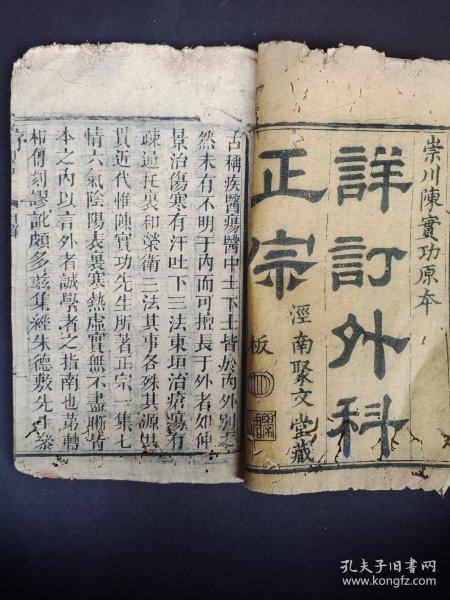 崇川陳實功原本
詳訂外科
正宗
涇南聚文堂藏
板
古稱疾醫瘍醫中士下士皆於內外別之
然未有不明于內而可擅長于外者如仲
景治傷寒有汗吐下三法東垣治瘡瘍有
疎通托裏和榮衛三法其事各殊其源
貫近代惟陳實功先生所著正宗一集七
情六氣陰陽表裏寒熱虛實無不盡晰
本之內以言外者誠學者之指南也第轉
傳刻謬訛頗多茲集經朱德敷先生
序
孔夫子旧书网
www.kongfz.com